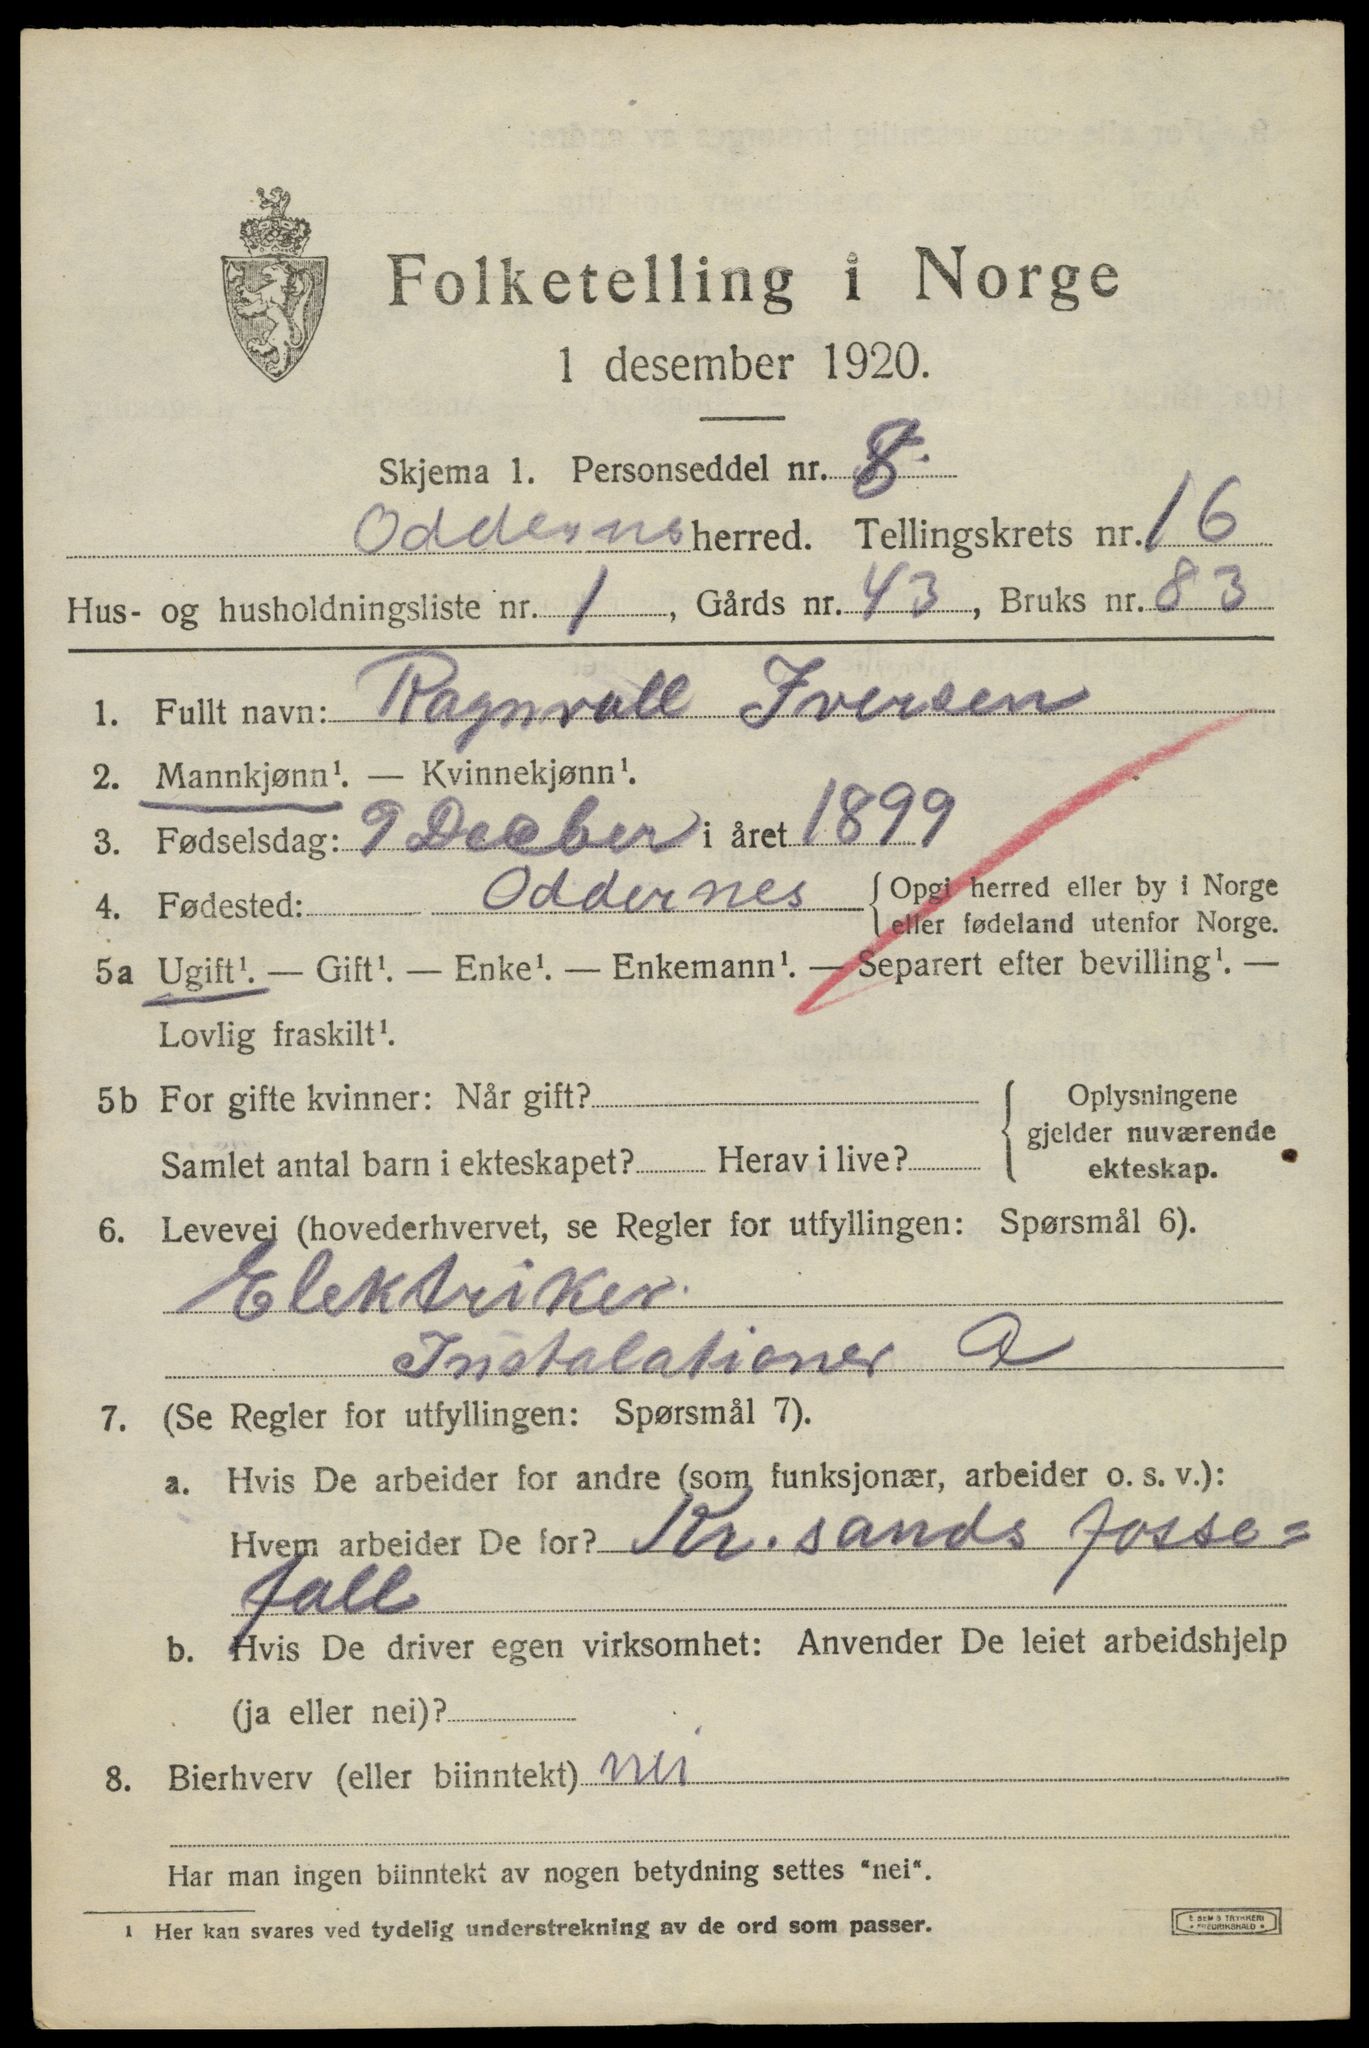 Folketelling i Norge
1 desember 1920.
Skjema 1. Personseddel nr. 8.
Oddernes herred. Tellingskrets nr. 16
Hus- og husholdningsliste nr. 1, Gårds nr. 43, Bruks nr. 83
1. Fullt navn: Ragnvall Iversen
2. Mannkjønn¹. — Kvinnekjønn¹.
3. Fødselsdag: 9 Decber i året 1899
4. Fødested: Oddernes {Opgi herred eller by i Norge
eller fødeland utenfor Norge.
5a Ugift¹. — Gift¹. — Enke¹. — Enkemann¹. — Separert efter bevilling¹. —
Lovlig fraskilt¹.
5b For gifte kvinner: Når gift? { Oplysningene
gjelder nuværende
Samlet antal barn i ekteskapet? Herav i live? ekteskap.
6. Levevei (hovederhvervet, se Regler for utfyllingen: Spørsmål 6).
Elektriker.
Instalationer A
7. (Se Regler for utfyllingen: Spørsmål 7).
a. Hvis De arbeider for andre (som funksjonær, arbeider o. s. v.):
Hvem arbeider De for? Kr.sands fosse=
fall
b. Hvis De driver egen virksomhet: Anvender De leiet arbeidshjelp
(ja eller nei)?
8. Bierhverv (eller biinntekt) nei
Har man ingen biinntekt av nogen betydning settes "nei".
1 Her kan svares ved tydelig understrekning av de ord som passer.